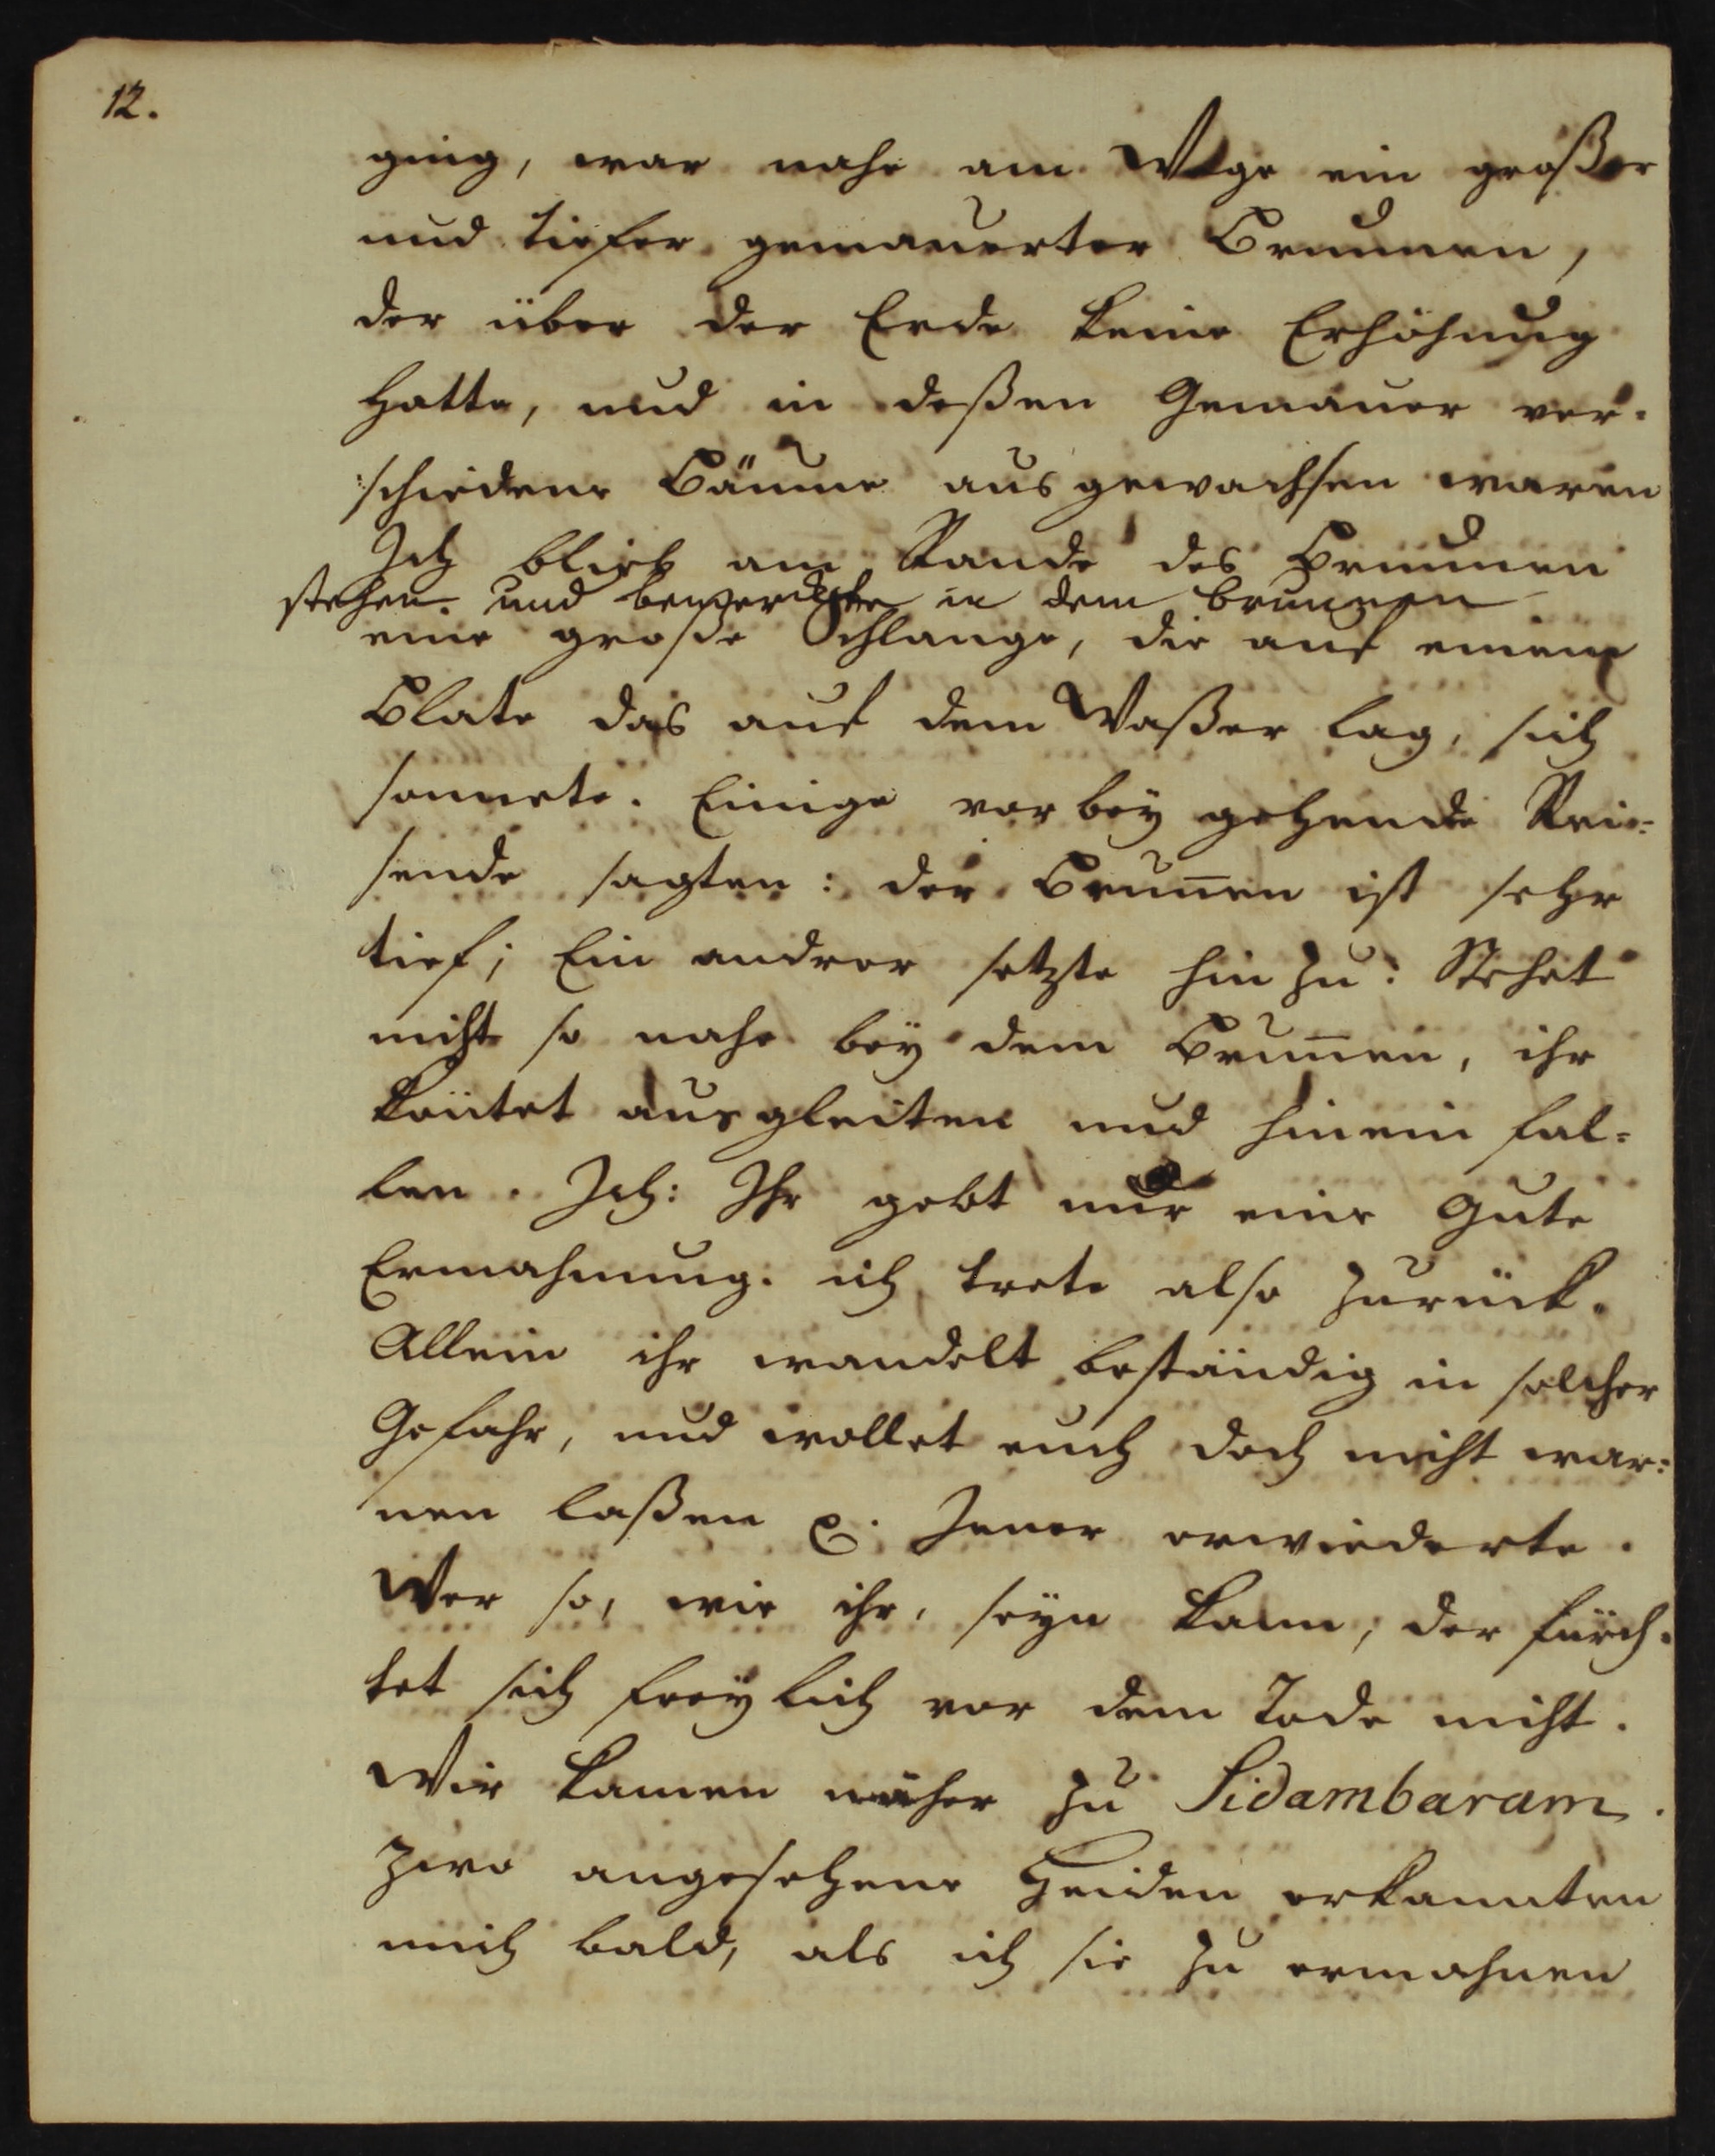 12.
ging, war nahe am Wege ein großer
und tiefer gemauerter Brunnen,
der über der Erde keine Erhöhung
hatte, und in deßen Gemäuer ver-
schiedene Bäume ausgewachsen waren
Ich blieb am Rande des Brunnen
stehen. und bemerckte in dem brunnen
eine große Schlange, die auf einem
Blate das auf dem Waßer lag, sich
sonnete. Einige vorbey gehende Rei-
sende sagten: der Brunen ist sehr
tief; Ein andrer setzte hinzu: Stehet
nicht so nahe bey dem Brunen, ihr
köntet ausgleiten und hinein fal-
len. Ich: Ihr gebt mir eine Gute
Ermahnung. ich trete also zurück.
Allein ihr wandelt beständig in solcher
Gefahr, und wollet euch doch nicht war-
nen laßen p. Jener erwiederte.
Wer so, wie ihr, seyn kann, der fürch-
tet sich freylich vor dem Tode nicht.
Wir kamen näher zu Sidambaram.
Zwo angesehene Heiden erkannten
mich bald, als ich sie zu ermahnen